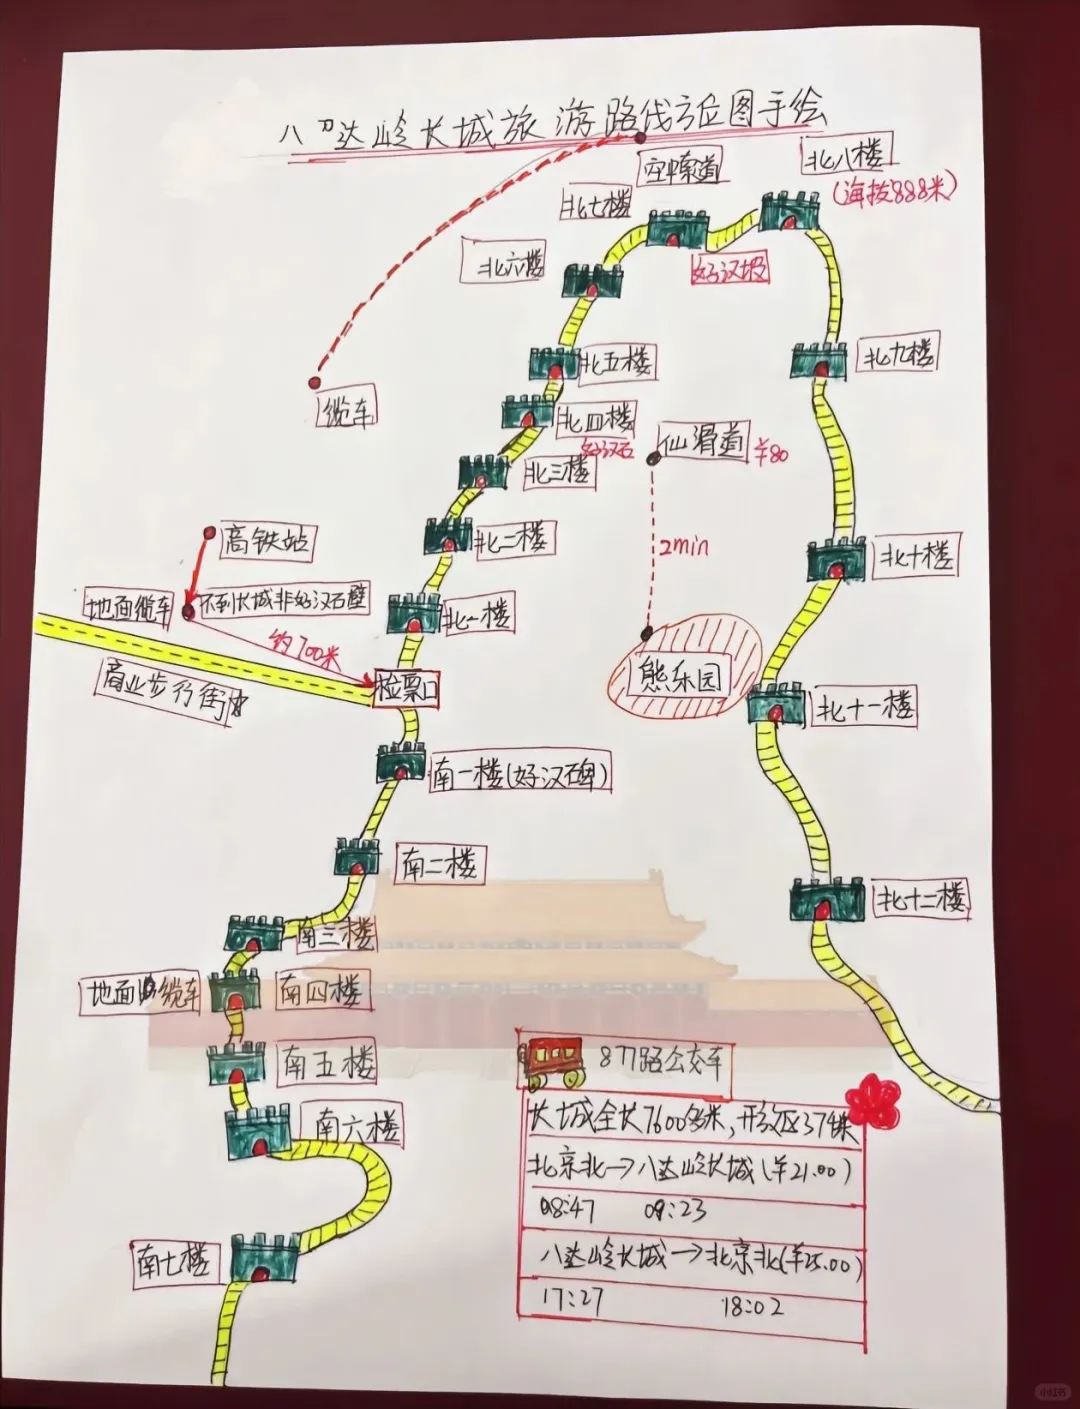 八达岭长城旅游路线方位图手绘
空中索道
北八楼
(海拔888米)
北七楼
北六楼
好汉坡
北五楼
北九楼
缆车
北四楼
好汉石
仙滑道 ¥80
北三楼
高铁站
北二楼
2min
北十楼
地面缆车
不到长城非好汉石壁
北一楼
约700米
商业步行街
检票口
熊乐园
北十一楼
南一楼(好汉碑)
南二楼
北十二楼
南三楼
地面缆车
南四楼
南五楼
877路公交车
南六楼
长城全长7600多米,开放区3741米
北京北→八达岭长城(¥21.00)
08:47 09:23
南七楼
八达岭长城→北京北(¥25.00)
17:27 18:02
小红书